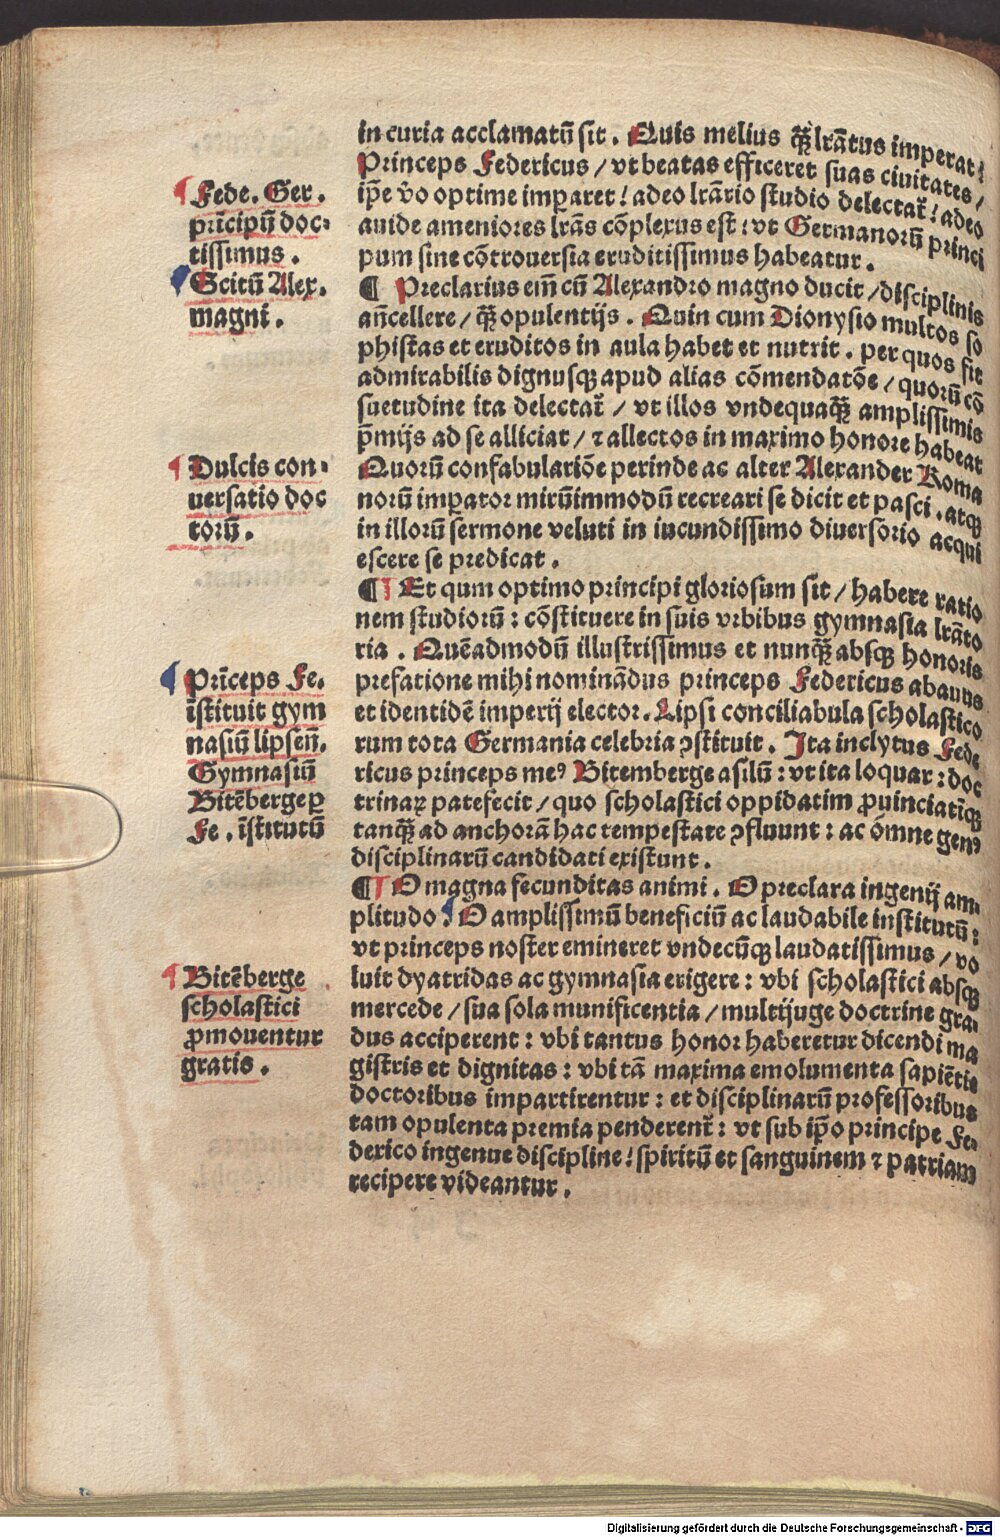 in curia acclamatū sit. Quis melius q̄ꝫ lr̄atus imperat:
Princeps Federicus / vt beatas efficeret suas ciuitates /
ip̄e v̄o optime imparet! adeo lr̄ario studio delectat̄! adeo
auide ameniores lr̄as cōplexus est: vt Germanorū princi
pum sine cōtrouersia eruditissimus habeatur.
¶ Preclarius em̄ cū Alexandro magno ducit / disciplinis
an̄cellere / q̄ꝫ opulentijs. Quin cum Dionysio multos so
phistas et eruditos in aula habet et nutrit. per quos fit
admirabilis dignusqꝫ apud alias cōmendatōe / quorū cō
suetudine ita delectat̄ / vt illos vndequaq̄ꝫ amplissimis
p̄mijs ad se alliciat / ⁊ allectos in maximo honore habeat
Quorū confabulariōe perinde ac alter Alexander Roma
norū impator mirūimmodū recreari se dicit et pasci. atqꝫ
in illorū sermone veluti in iucundissimo diuersorio acqui
escere se predicat.
¶ Et qum optimo principi gloriosum sit / habere ratio
nem studiorū: cōstituere in suis vrbibus gymnasia lr̄ato
ria. Quēadmodū illustrissimus et nunq̄ꝫ absqꝫ honoris
prefatione mihi nominādus princeps Federicus abauus
et identidē imperij elector. Lipsi conciliabula scholastico
rum tota Germania celebria ꝯstituit. Ita inclytus Fede
ricus princeps meꝰ Bitemberge asilū: vt ita loquar: doc
trinaꝝ patefecit / quo scholastici oppidatim ꝓuinciatīqꝫ
tanq̄ꝫ ad anchorā hac tempestate ꝯfluunt: ac ōmne genꝰ
disciplinarū candidati existunt.
¶ O magna fecunditas animi. O preclara ingenij am-
plitudo! O amplissimū beneficiū ac laudabile institutū:
vt princeps noster emineret vndecūqꝫ laudatissimus / vo
luit dyatridas ac gymnasia erigere: vbi scholastici absqꝫ
mercede / sua sola munificentia / multijuge doctrine gra-
dus acciperent: vbi tantus honor haberetur dicendi ma
gistris et dignitas: vbi tā maxima emolumenta sapiētie
doctoribus impartirentur: et disciplinarū professoribus
tam opulenta premia penderent̄: vt sub ip̄o principe Fe-
derico ingenue discipline! spiritū et sanguinem ⁊ patriam
recipere videantur.
Fede. Ger.
prīcipū doc-
tissimus.
Scitū Alex.
magni.
Dulcis con-
uersatio doc
torū.
Prīceps Fe.
īstituit gym
nasiū lipsen̄.
Gymnasiū
Bitēberge ꝑ
Fe. īstitutū
Bitēberge
scholastici
ꝓmouentur
gratis.
Digitalisierung gefördert durch die Deutsche Forschungsgemeinschaft - DFG